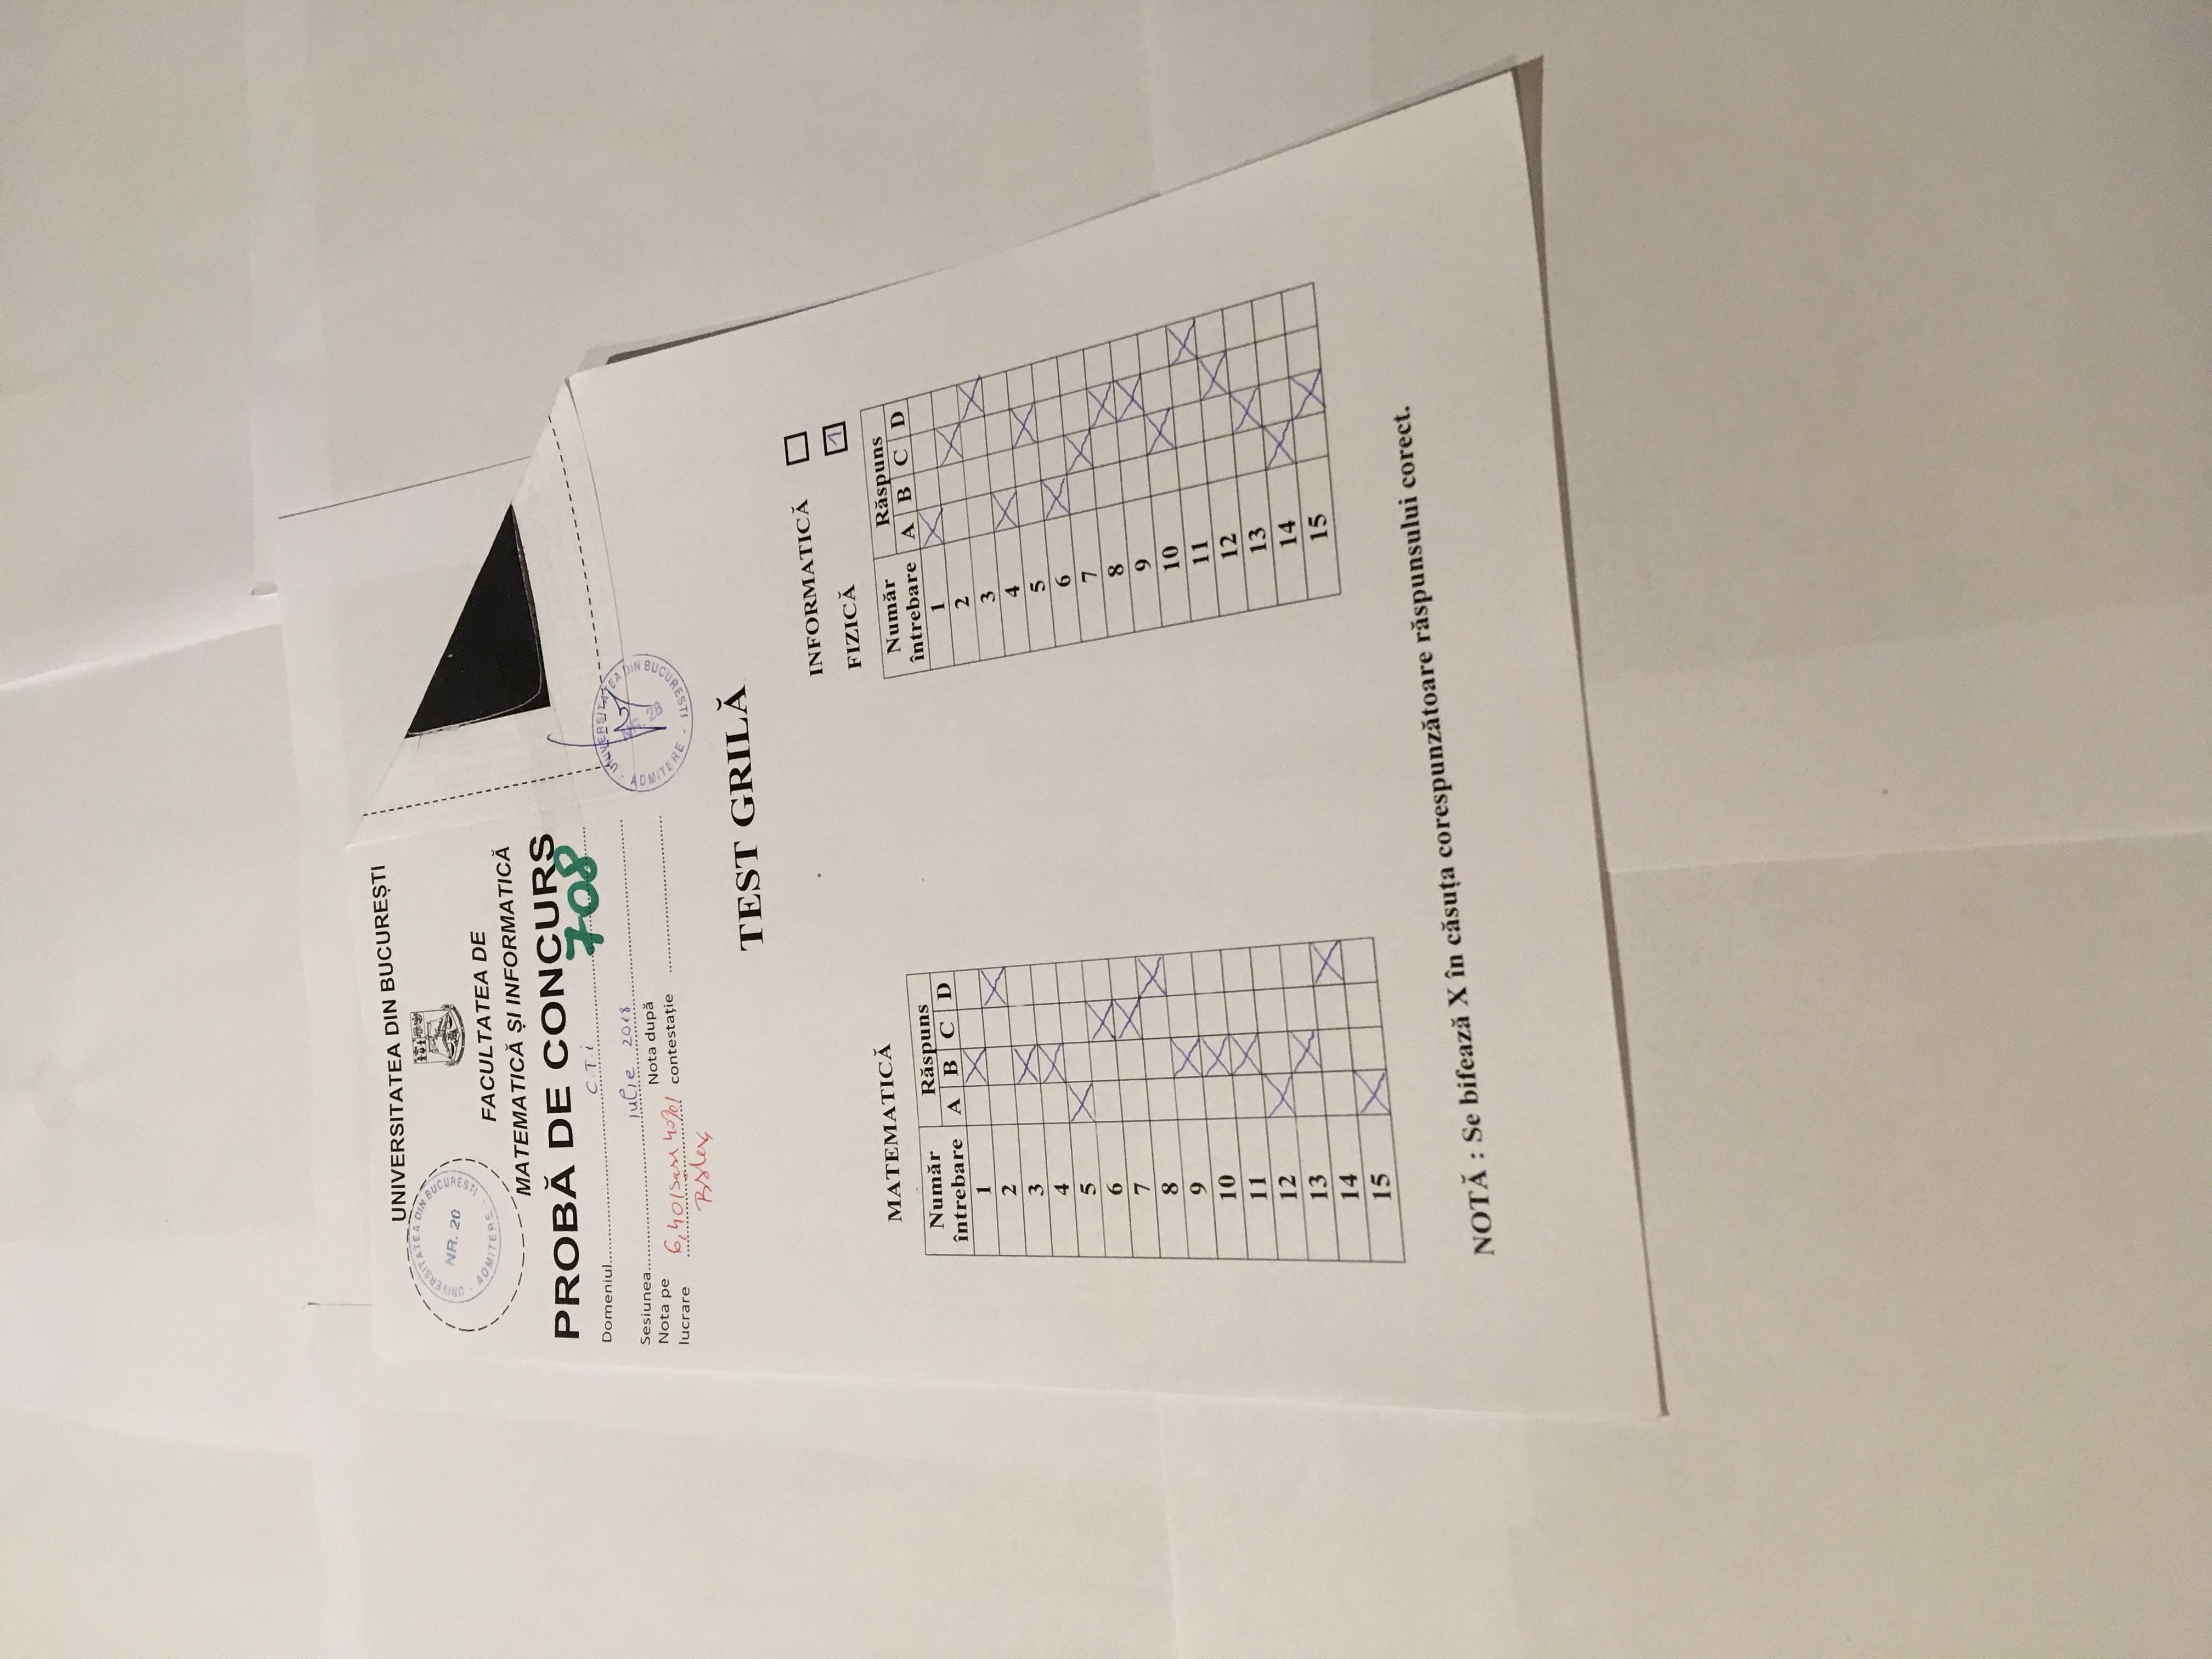 UNIVERSITATEA DIN BUCUREȘTI
UNIVERSITATEA DIN BUCUREȘTI - ADMITERE -
NR. 20
FACULTATEA DE
MATEMATICĂ ȘI INFORMATICĂ
PROBĂ DE CONCURS
708
Domeniul C.T.i
Sesiunea iulie 2018
Nota pe lucrare 6,40 (șase 40%)
Nota după contestație
UNIVERSITATEA DIN BUCURESTI - ADMITERE -
TEST GRILĂ
INFORMATICĂ
FIZICĂ 1
MATEMATICĂ
Număr întrebare Răspuns
A B C D
1 X
2 X
3 X
4 X
5 X
6 X
7 X
8 X
9 X
10 X
11 X
12 X
13 X
14 X
15 X
Număr întrebare Răspuns
A B C D
1 X
2 X
3 X
4 X
5 X
6 X
7 X
8 X
9 X
10 X
11 X
12 X
13 X
14 X
15 X
NOTĂ : Se bifează X în căsuța corespunzătoare răspunsului corect.